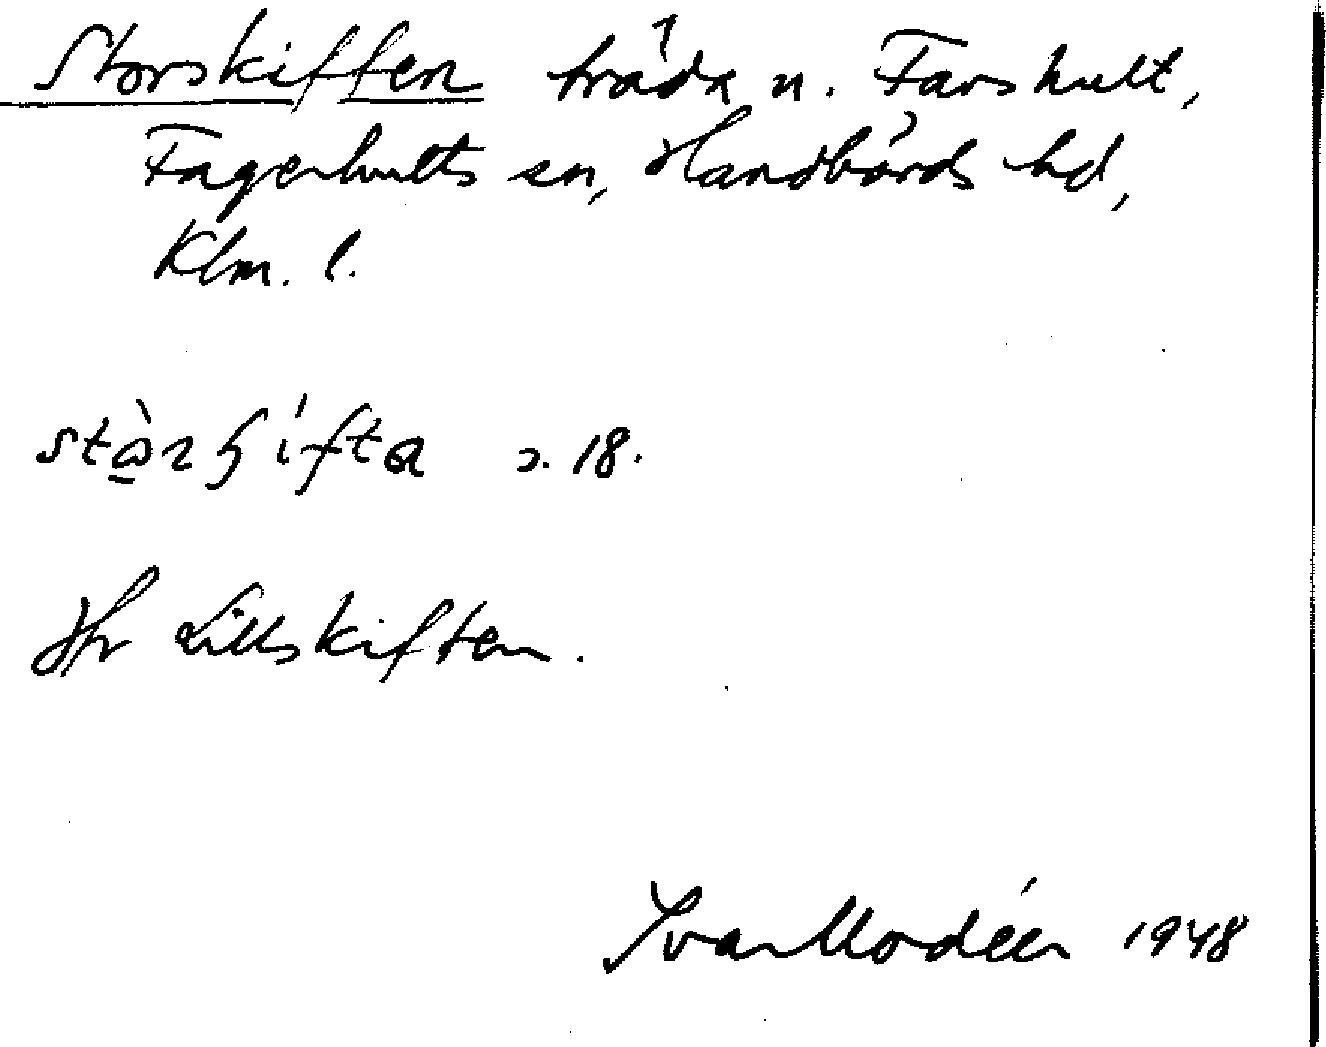 Storskiften träda n. Farshult,
Fagerhults sn, Handbörds hd,
Klm. l.
s. 18.
Jfr Lillskiften.
Ivar Modéer 1948